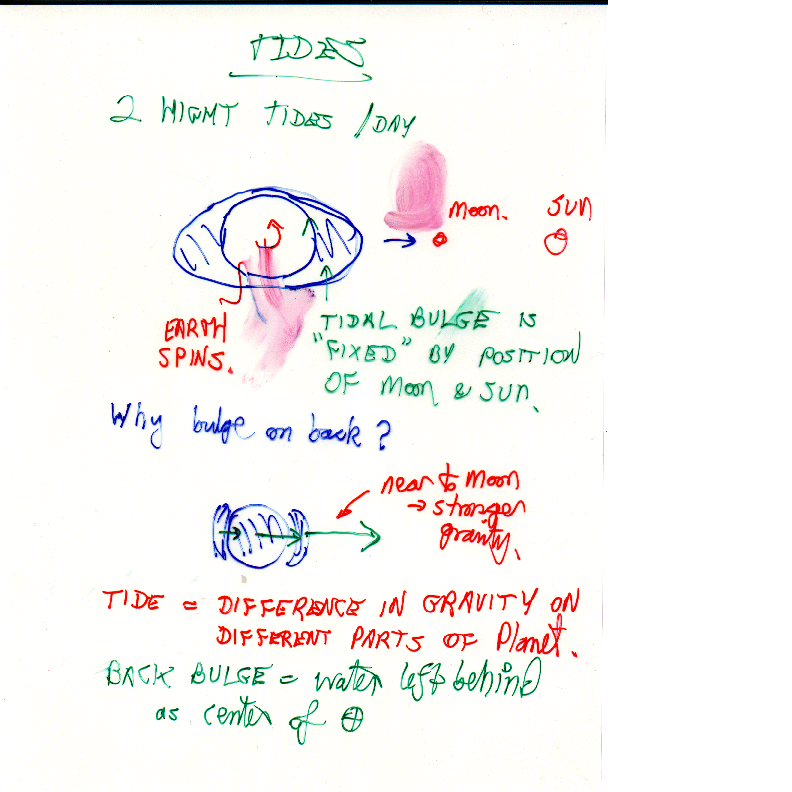 TIDES
2 HIGHT TIDES / DAY
Moon. SUN
EARTH
SPINS.
TIDAL BULGE IS
"FIXED" BY POSITION
OF Moon & SUN.
Why bulge on back?
near to Moon
→ stronger
gravity.
TIDE = DIFFERENCE IN GRAVITY ON
DIFFERENT PARTS OF Planet.
BACK BULGE = water left behind
as center of ⊕